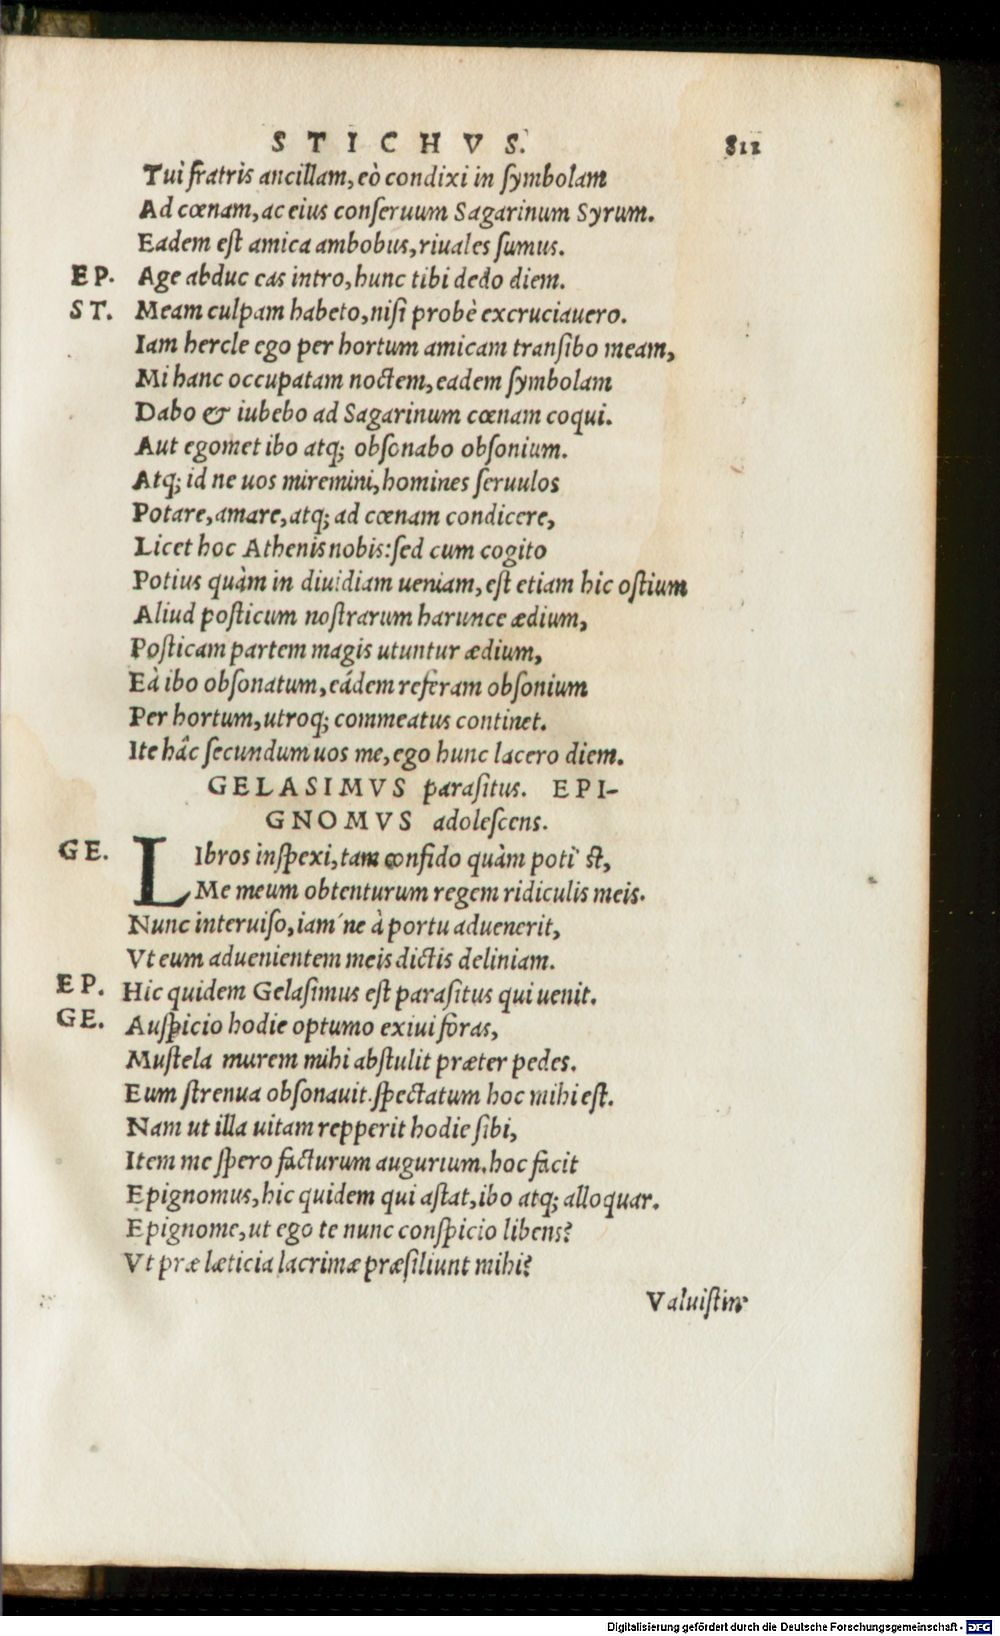 STICHVS. 811
Tui fratris ancillam, eò condixi in ſymbolam
Ad cœnam, ac eius conſeruum Sagarinum Syrum.
Eadem eſt amica ambobus, riuales ſumus.
EP. Age abduc eas intro, hunc tibi dedo diem.
ST. Meam culpam habeto, niſi probè excruciauero.
Iam hercle ego per hortum amicam tranſibo meam,
Mi hanc occupatam noctem, eadem ſymbolam
Dabo & iubebo ad Sagarinum cœnam coqui.
Aut egomet ibo atq; obſonabo obſonium.
Atq; id ne uos miremini, homines ſeruulos
Potare, amare, atq; ad cœnam condicere,
Licet hoc Athenis nobis: ſed cum cogito
Potius quàm in diuidiam ueniam, eſt etiam hic oſtium
Aliud poſticum noſtrarum harunce ædium,
Poſticam partem magis utuntur ædium,
Eà ibo obſonatum, eádem referam obſonium
Per hortum, utroq; commeatus continet.
Ite hâc ſecundum uos me, ego hunc lacero diem.
GELASIMVS paraſitus. EPI-
GNOMVS adoleſcens.
GE. LIbros inſpexi, tam confido quàm poti' ſt,
Me meum obtenturum regem ridiculis meis.
Nunc interuiſo, iam'ne à portu aduenerit,
Vt eum aduenientem meis dictis deliniam.
EP. Hic quidem Gelaſimus eſt paraſitus qui uenit.
GE. Auſpicio hodie optumo exiui foras,
Muſtela murem mihi abſtulit præter pedes.
Eum ſtrenua obſonauit. ſpectatum hoc mihi eſt.
Nam ut illa uitam repperit hodie ſibi,
Item me ſpero facturum augurium. hoc facit
Epignomus, hic quidem qui aſtat, ibo atq; alloquar.
Epignome, ut ego te nunc conſpicio libens?
Vt præ læticia lacrimæ præſiliunt mihi?
Valuiſtin'
Digitalisierung gefördert durch die Deutsche Forschungsgemeinschaft - DFG